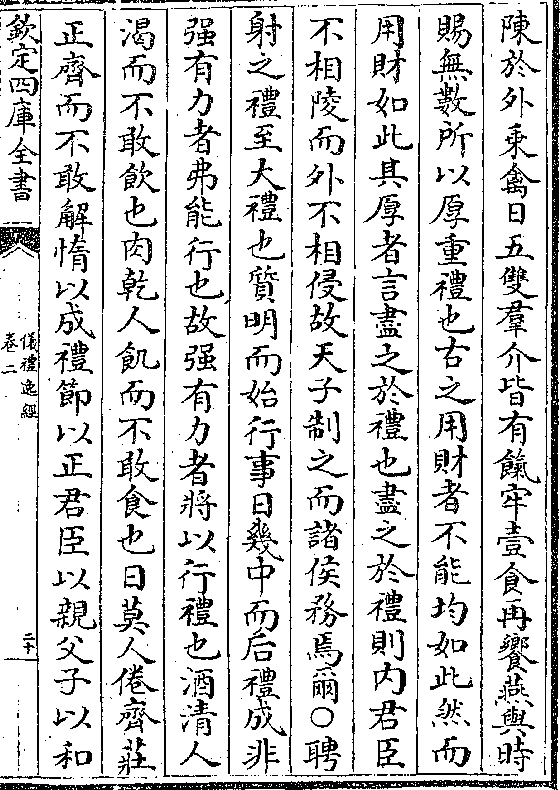 陳於外乗禽日五雙羣介皆有餼牢壹食再饗燕與時
賜無數所以厚重禮也古之用財者不能均如此然而
用財如此其厚者言盡之於禮也盡之於禮則内君臣
不相陵而外不相侵故天子制之而諸侯務焉爾○聘
射之禮至大禮也質明而始行事日幾中而后禮成非
强有力者弗能行也故强有力者將以行禮也酒清人
渴而不敢飲也肉乾人飢而不敢食也日莫人倦齊莊
正齊而不敢解惰以成禮節以正君臣以親父子以和
欽定四庫全書
儀禮逸經
卷二
二十